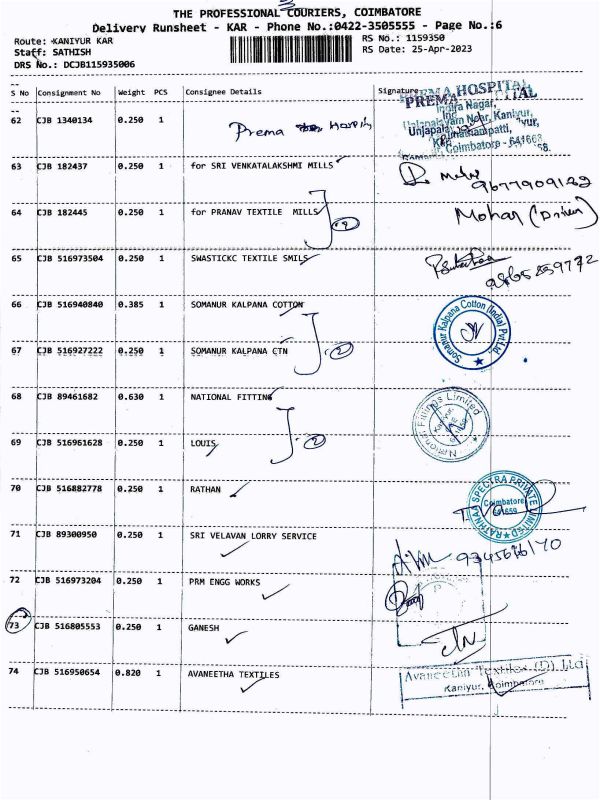 3
THE PROFESSIONAL COURIERS, COIMBATORE
Delivery Runsheet - KAR - Phone No.:0422-3505555 - Page No.:6
Route: KANIYUR KAR
RS No.: 1159350
Staff: SATHISH
RS Date: 25-Apr-2023
DRS No.: DCJB115935006
S No Consignment No Weight PCS Consignee Details Signature
62 CJB 1340134 0.250 1 Prema Hospital
PREMA HOSPITAL
Indira Nagar,
Coimbatore - 641668.
63 CJB 182437 0.250 1 for SRI VENKATALAKSHMI MILLS
64 CJB 182445 0.250 1 for PRANAV TEXTILE MILLS 2 Mohan (Driver)
65 CJB 516973504 0.250 1 SWASTICKC TEXTILE SMILS
66 CJB 516940840 0.385 1 SOMANUR KALPANA COTTON
Somanur Kalpana Cotton (India) Pvt.Ltd.
67 CJB 516927222 0.250 1 SOMANUR KALPANA CTN 2
68 CJB 89461682 0.630 1 NATIONAL FITTING
National Fittings Limited
Kaniyur,
69 CJB 516961628 0.250 1 LOUIS 2
70 CJB 516882778 0.250 1 RATHAN
SPECTRA PRIVATE LIMITED
Coimbatore
641659
71 CJB 89300950 0.250 1 SRI VELAVAN LORRY SERVICE
72 CJB 516973204 0.250 1 PRM ENGG WORKS
73 CJB 516805553 0.250 1 GANESH
74 CJB 516950654 0.820 1 AVANEETHA TEXTILES
Avaneetha Textiles (P) Ltd
Kaniyur, Coimbatore